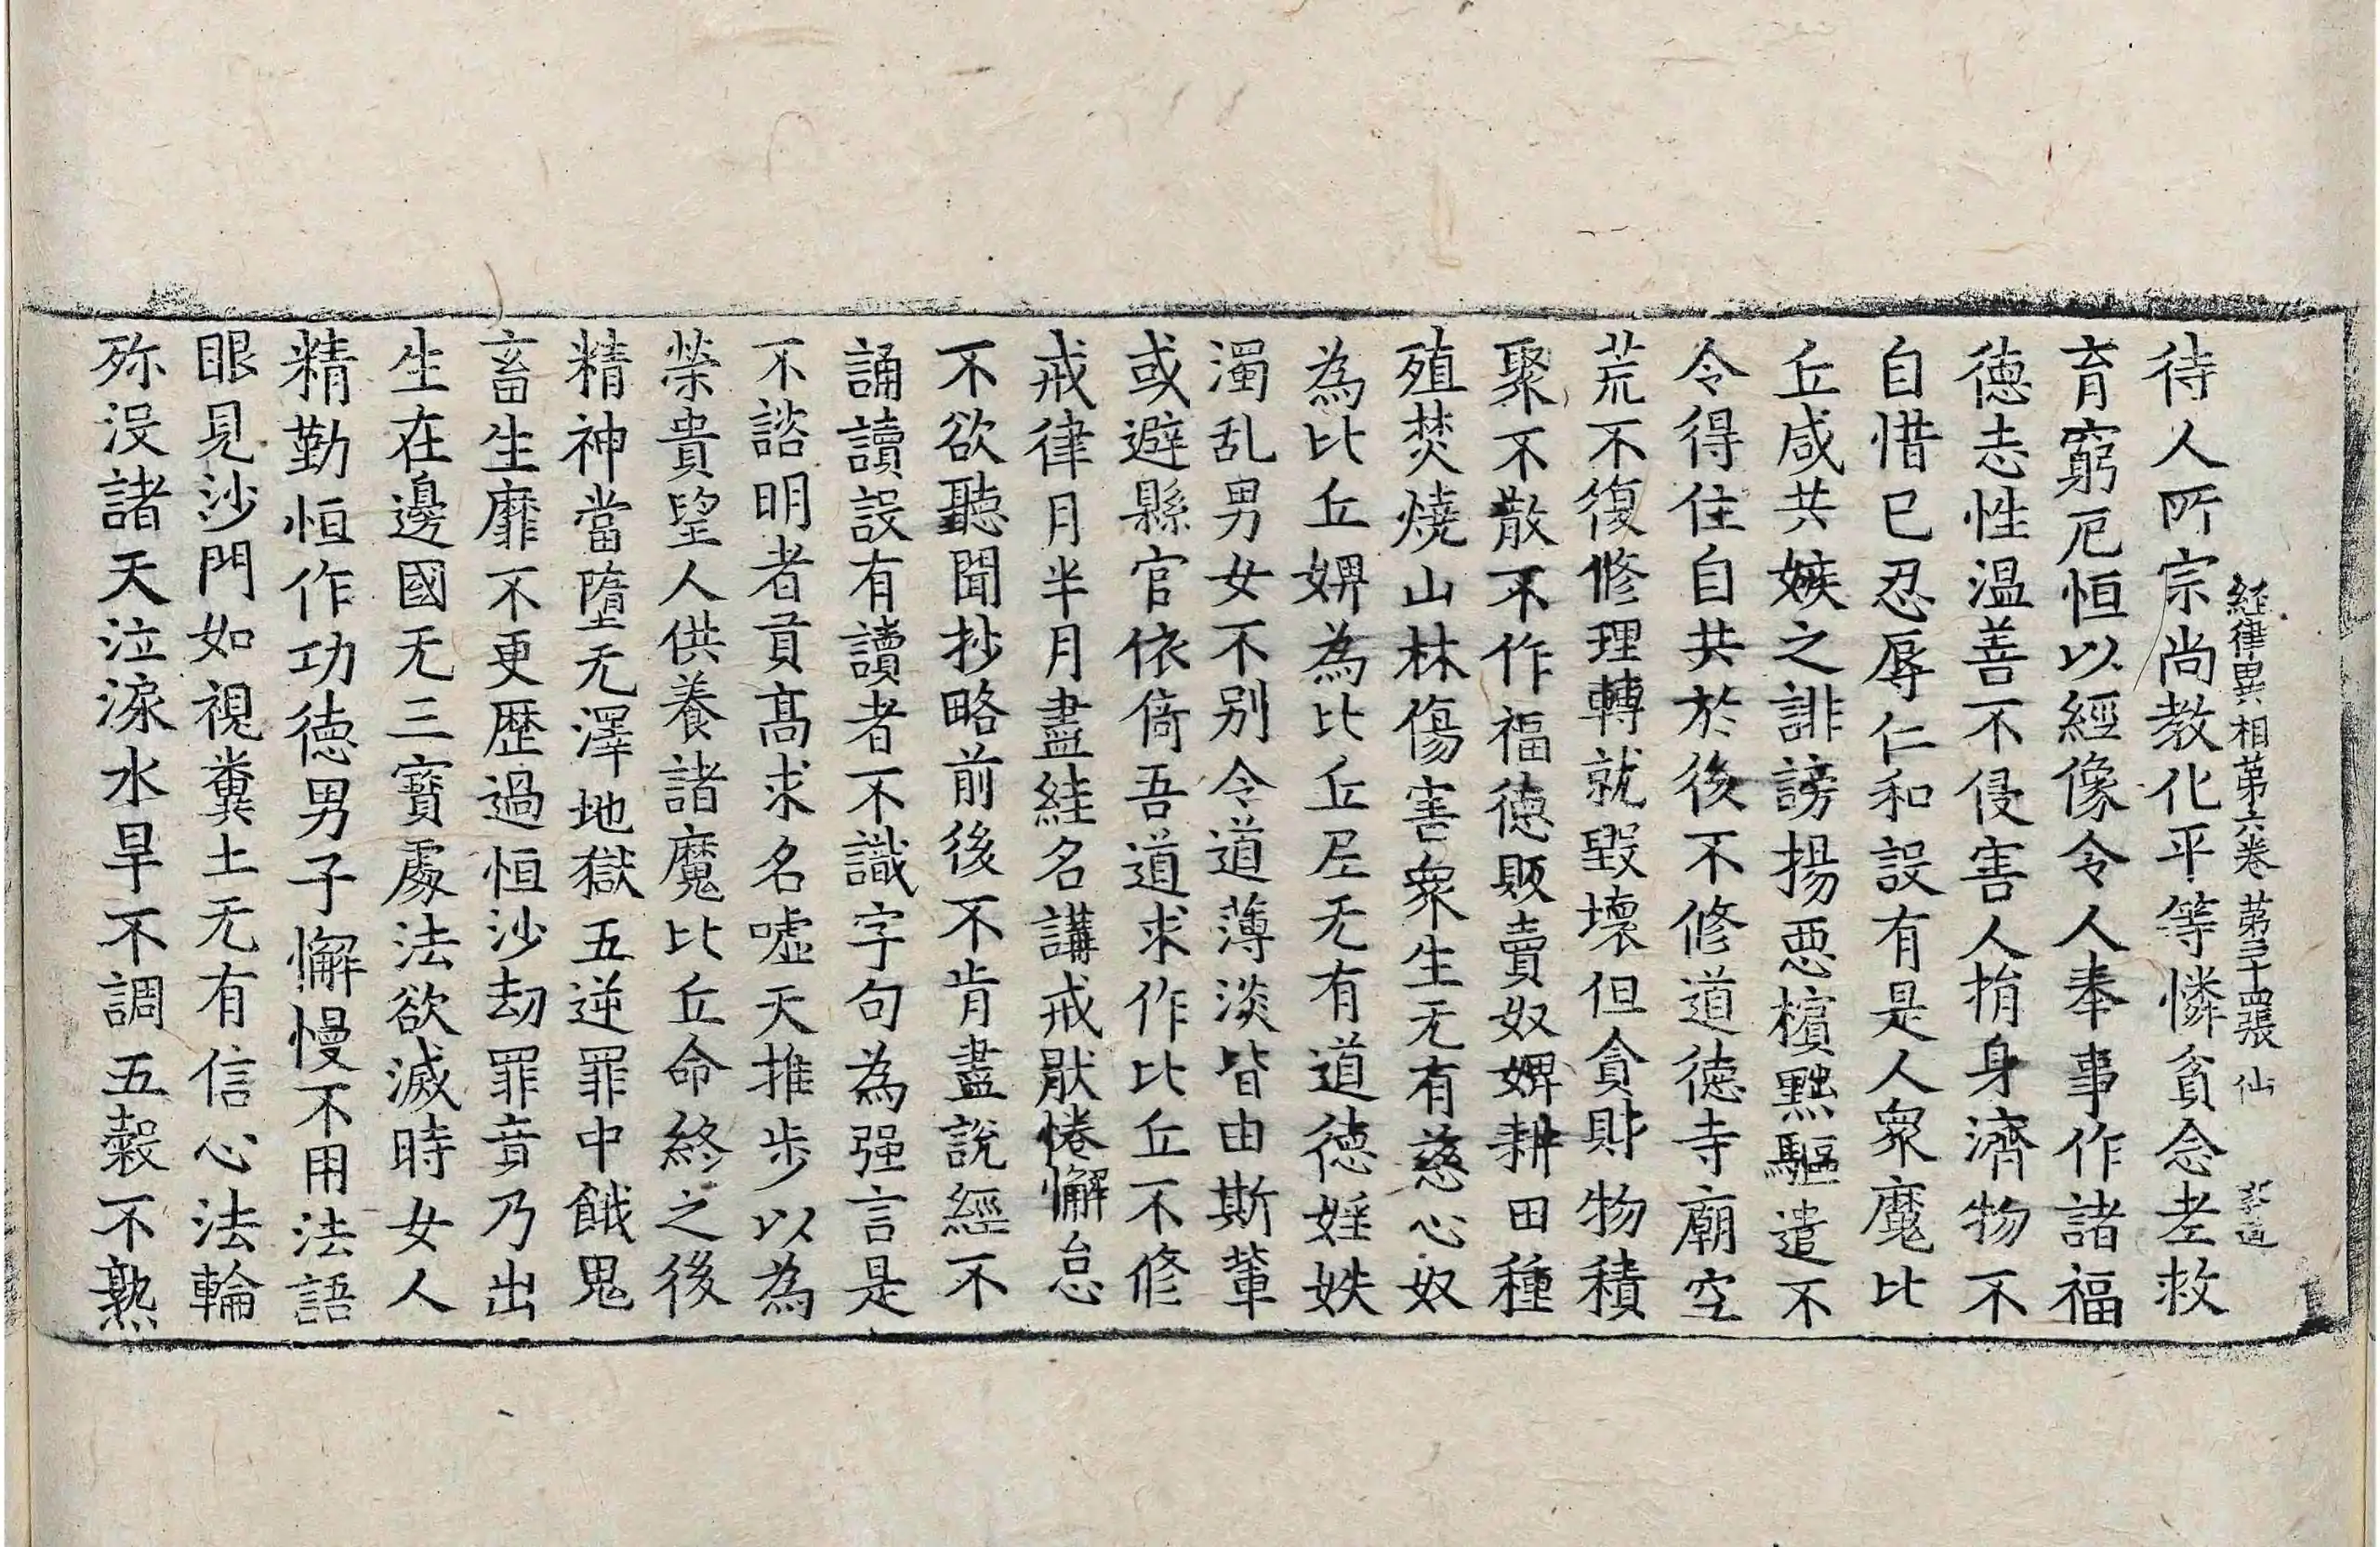 経律異相苐六卷 苐三十四張 仙
待人所宗尚教化平等憐貧念老救
育窮厄恒以經像令人奉事作諸福
德志性溫善不侵害人捐身濟物不
自惜己忍辱仁和設有是人衆魔比
丘咸共嫉之誹謗揚惡擯黜驅遣不
令得住自共於後不修道德寺廟空
荒不復修理轉就毀壞但貪財物積
聚不散不作福德販賣奴婢耕田種
殖焚燒山林傷害衆生无有慈心奴
為比丘婢為比丘尼无有道德婬妷
濁乱男女不別令道薄淡皆由斯輩
或避縣官依倚吾道求作比丘不修
戒律月半月盡絓名講戒猒惓懈怠
不欲聽聞抄略前後不肯盡說經不
誦讀設有讀者不識字句為强言是
不諮明者貢高求名噓天推步以為
榮貴望人供養諸魔比丘命終之後
精神當墮无澤地獄五逆罪中餓鬼
畜生靡不更歷過恒沙劫罪竟乃出
生在邊國无三寶處法欲滅時女人
精勤恒作功德男子懈慢不用法語
眼見沙門如視糞土无有信心法輪
殄没諸天泣淚水旱不調五穀不熟